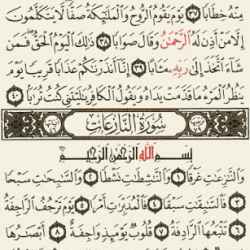 مِنْهُ خِطَابًا ﴿٣٧﴾ يَوْمَ يَقُومُ الرُّوحُ وَالْمَلَٰٓئِكَةُ صَفًّا لَّا يَتَكَلَّمُونَ
إِلَّا مَنْ أَذِنَ لَهُ الرَّحْمَٰنُ وَقَالَ صَوَابًا ﴿٣٨﴾ ذَٰلِكَ الْيَوْمُ الْحَقُّ فَمَن
شَآءَ اتَّخَذَ إِلَىٰ رَبِّهِ مَـَٔابًا ﴿٣٩﴾ إِنَّآ أَنذَرْنَٰكُمْ عَذَابًا قَرِيبًا يَوْمَ
يَنظُرُ الْمَرْءُ مَا قَدَّمَتْ يَدَاهُ وَيَقُولُ الْكَافِرُ يَٰلَيْتَنِي كُنتُ تُرَٰبًا ﴿٤٠﴾
سُورَةُ النَّازِعَاتِ
بِسْمِ اللَّهِ الرَّحْمَٰنِ الرَّحِيمِ
وَالنَّٰزِعَٰتِ غَرْقًا ﴿١﴾ وَالنَّٰشِطَٰتِ نَشْطًا ﴿٢﴾ وَالسَّٰبِحَٰتِ سَبْحًا
﴿٣﴾ فَالسَّٰبِقَٰتِ سَبْقًا ﴿٤﴾ فَالْمُدَبِّرَٰتِ أَمْرًا ﴿٥﴾ يَوْمَ تَرْجُفُ الرَّاجِفَةُ
﴿٦﴾ تَتْبَعُهَا الرَّادِفَةُ ﴿٧﴾ قُلُوبٌ يَوْمَئِذٍ وَاجِفَةٌ ﴿٨﴾ أَبْصَٰرُهَا